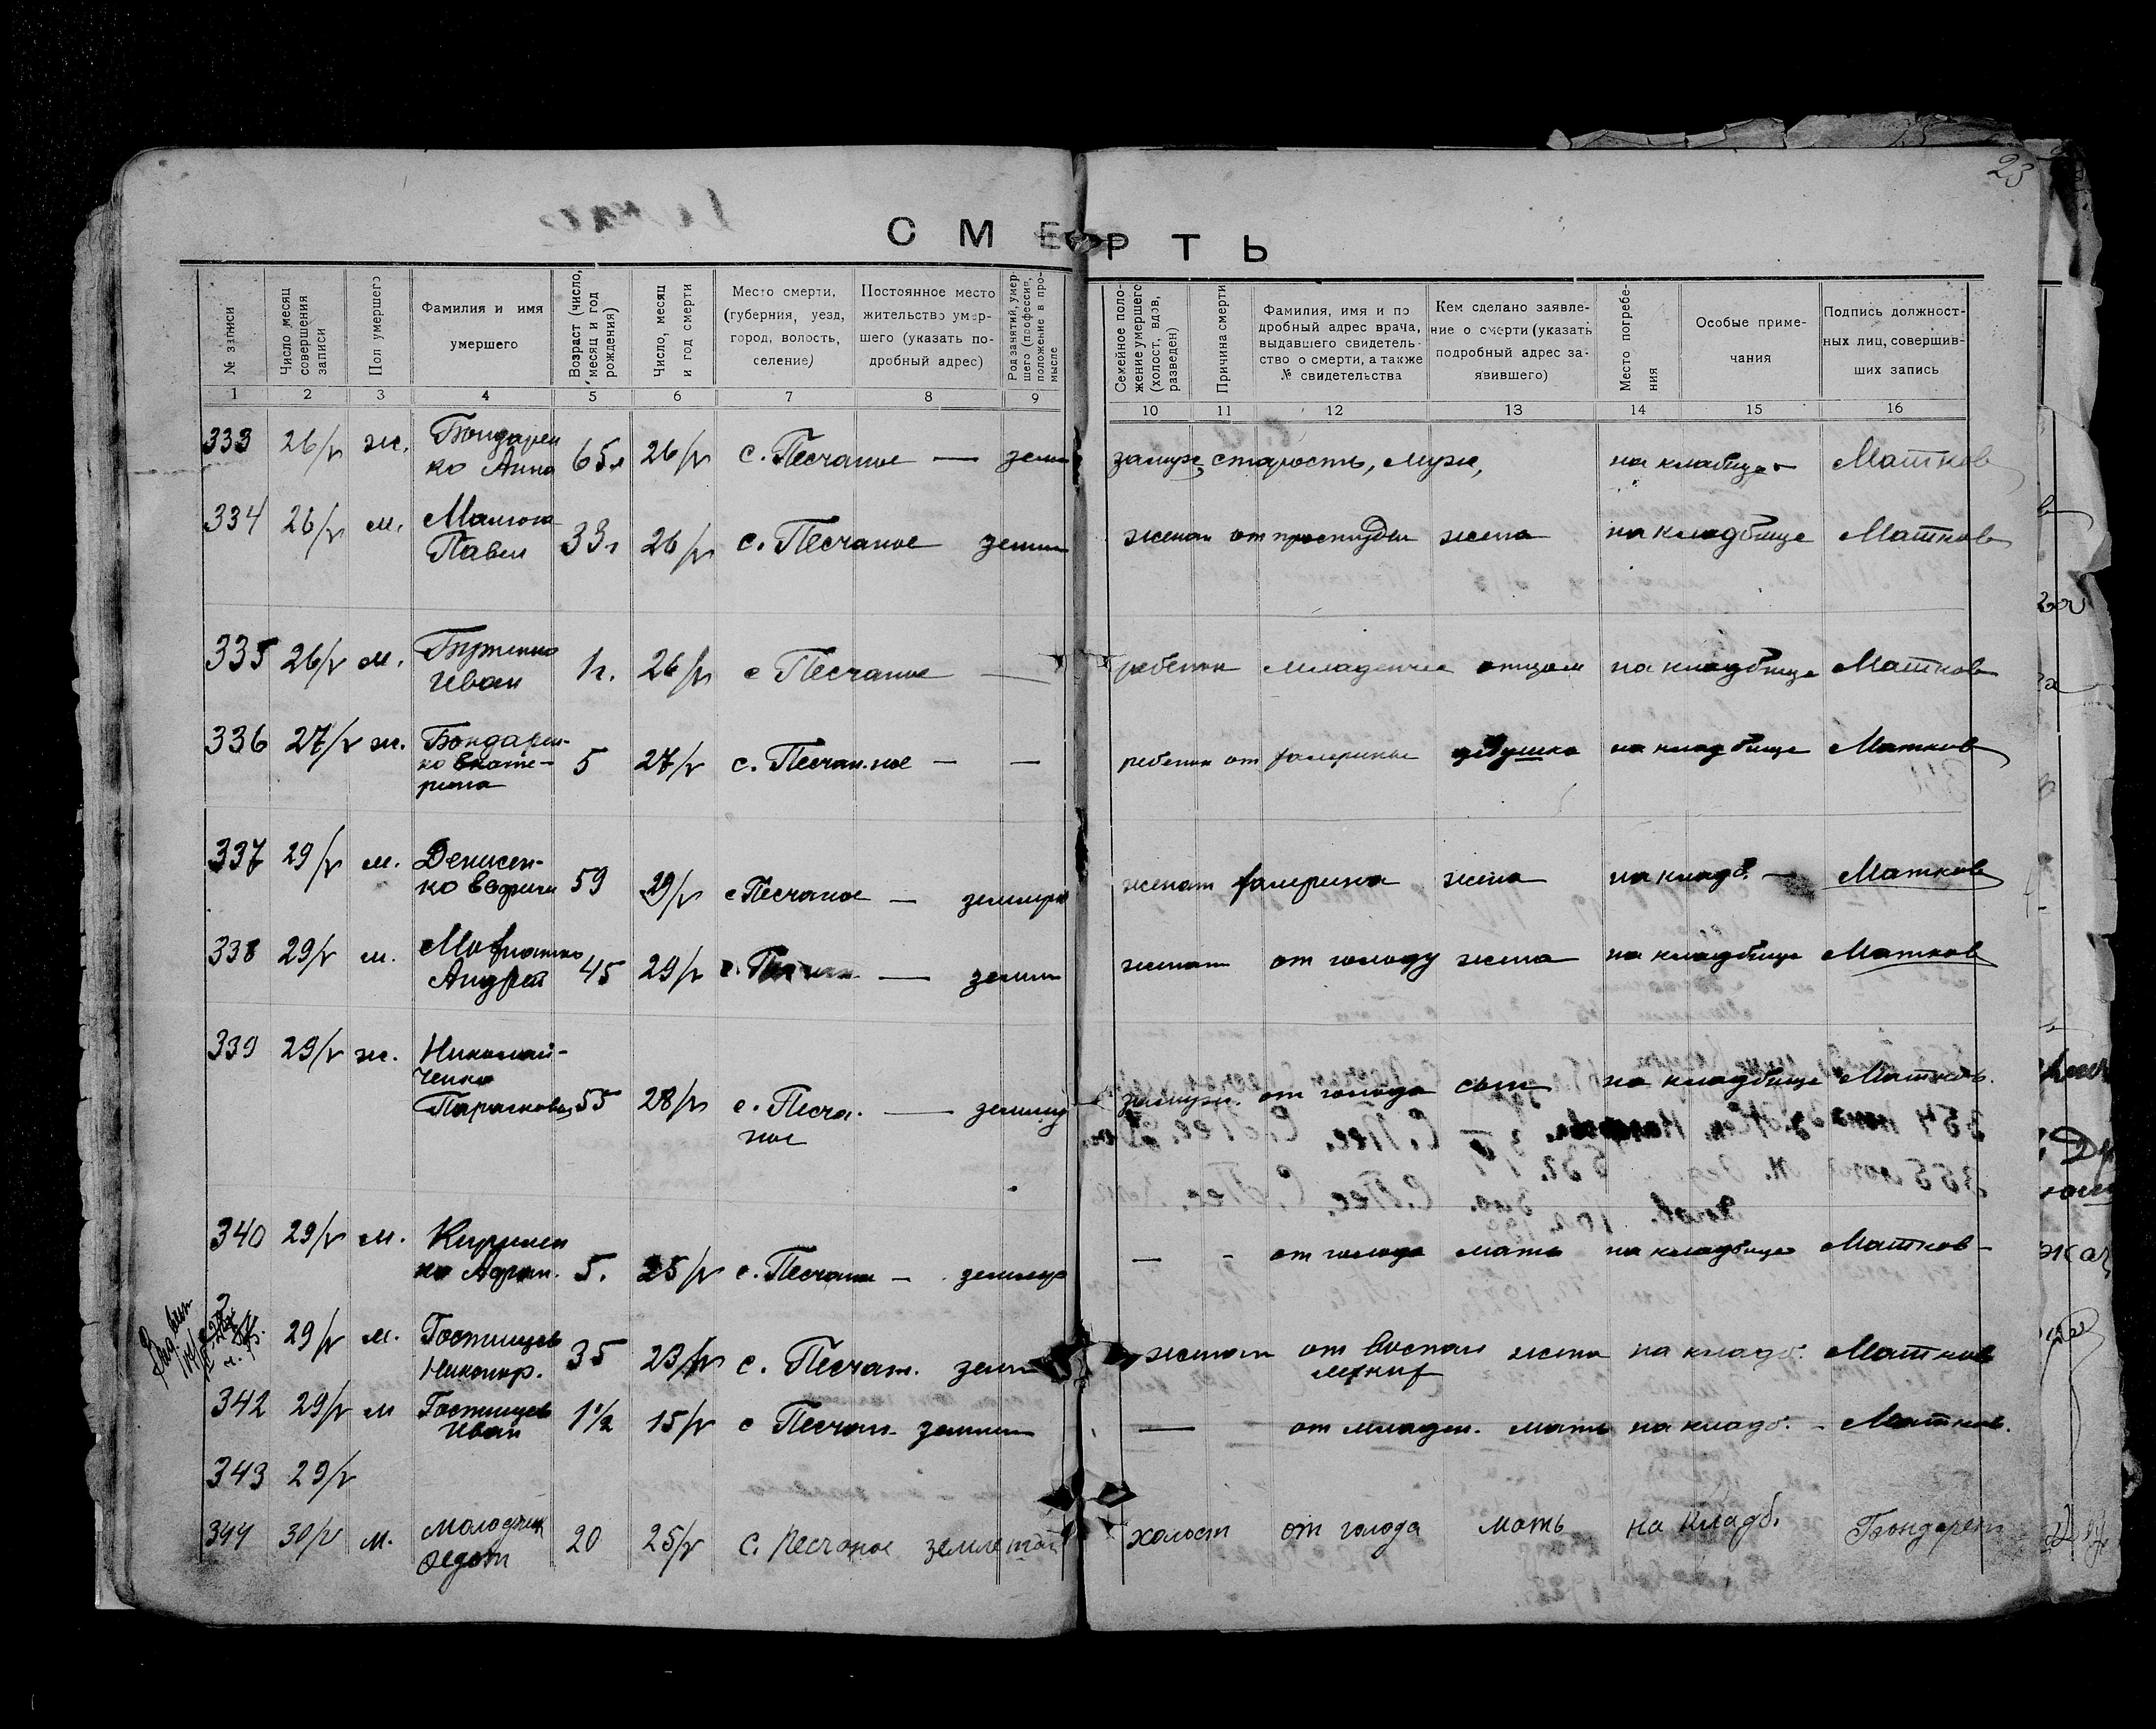 23
СМЕРТЬ
№ записи
Число месяц совершения записи
Пол умершего
Фамилия и имя умершего
Возраст (число, месяц и год рождения)
Число, месяц и год смерти
Место смерти, (губерния, уезд, город, волость, селение)
Постоянное место жительство умершего (указать подробный адрес)
Род занятий, умершего (профессия, положение в промысле
Семейное положение умершего (холост, вдов, разведен)
Причина смерти
Фамилия, имя и подробный адрес врача, выдавшего свидетельство о смерти, а также № свидетельства
Кем сделано заявление о смерти (указать подробный адрес заявившего)
Место погребения
Особые примечания
Подпись должностных лиц, совершивших запись
1 2 3 4 5 6 7 8 9 10 11 12 13 14 15 16
333 26/V ж. Бондарен 26/V с. Песчаное — земл замуж, старость, муж, Матков
ко Анна 65л
334 26/V м. Павел 33г 26/V с. Песчаное земл женат от простуды жена на кладбище Матков
335 26/V м. 1г. 26/V с Песчаное — ребенок отцом на кладбище Матков
Иван
336 27/V ж. Бондарен-
ко Екате- 5 27/V с. Песчан.ное — — ребенок от дедушка на кладбище Матков
рина
337 29/V м. Денисен-
ко 59 29/V с Песчаное — землероб женат жена на кладб. — Матков
338 29/V м. Андрей 45 29/V — земл женат от голоду жена на кладбище Матков
339 29/V ж. Николай-
ченко
Парасковья 55 28/V с. Песча. — замужн. от голода сын на кладбище Матков.
ное
340 29/V м. Кириллен
ко 5. 25/V с. Песчан — землероб — - от голода мать на кладбище Матков -
29/V м. Гостищев 35 23/V с. Песчан. земл женат от Воспал жена на кладб. Матков
Никонор.
342 29/V м Гостищев 1½ 15/V с Песчан. — от младен. мать на кладб. - Матков.
Иван
343 29/V
344 30/V м. Федот 20 25/V с. Песчаное холост от голода мать на кладб. Бондарен